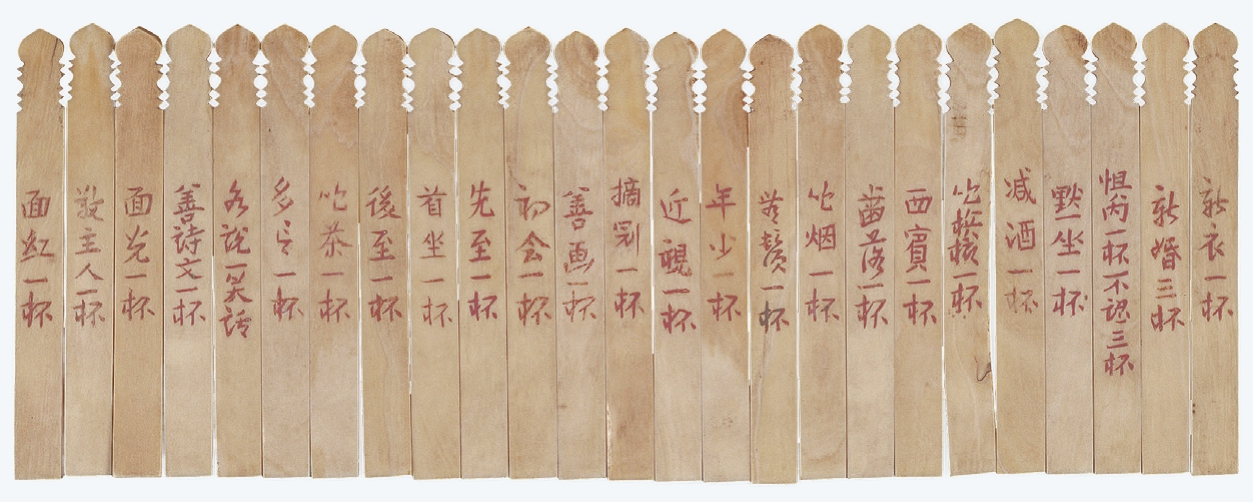 新衣一杯
新婚三杯
惧内一杯不認三杯
默坐一杯
减酒一杯
吃檳榔一杯
西賓一杯
齒落一杯
吃烟一杯
鬚一杯
年少一杯
近視一杯
摘 一杯
善画一杯
初会一杯
先至一杯
首坐一杯
後至一杯
吃茶一杯
多言一杯
各說一笑話
善詩文一杯
面光一杯
敬主人一杯
面紅一杯